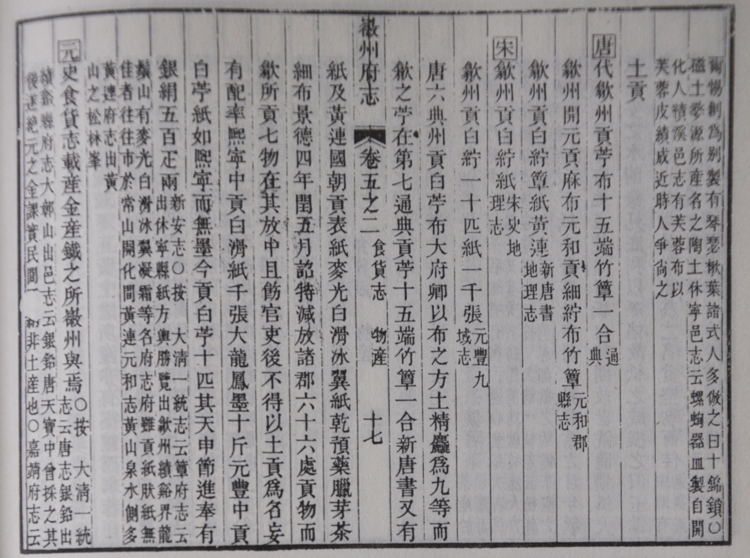 爾惕創為別製有琴瑟楸葉諸式人多倣之曰十錦鎖〇
磁土婺源所產名之陶土休寧邑志云螺蜔器皿製自開
化人積溪邑志有芙蓉布以
芙蓉皮績成近時人爭尚之
土貢
唐代歙州貢苧布十五端竹簟一合通典
歙州開元貢麻布元和貢細紵布竹簟元和郡縣志
歙州貢白紵簟紙黃連新唐書地理志
宋歙州貢白紵紙宋史地理志
歙州貢白紵一十匹紙一千張元豐九域志
唐六典州貢白苧布大府卿以布之方土精麤為九等而
歙之苧在第七通典貢苧十五端竹簟一合新唐書又有
徽州府志 卷五之二 食貨志 物產 十七
紙及黃連國朝貢表紙麥光白滑冰翼紙乾預藥臘芽茶
細布景德四年閏五月詔特減放諸郡六十六處貢物而
歙所貢七物在其放中且飭官吏後不得以土貢為名妄
有配率熙寧中貢白滑紙千張大龍鳳墨十斤元豐中貢
白苧紙如熙寧而無墨今貢白苧十匹其天申節進奉有
銀絹五百疋兩新安志〇按 大清一統志云簟府志云
出休寧縣紙方輿勝覽出歙州績溪界龍
鬚山有麥光白滑冰翼凝霜等名府志府雖貢紙狀紙無
佳者往往市於常山開化間黃連元和志黃山泉水側多
黃連府志出黃
山之松林峯
元史食貨志載產金產鐵之所徽州與焉〇按 大清一統
志云唐志銀鉛出
績谿縣府志大鄣山出邑志云銀鉛唐天寶中曾採之其
後遂絕元之金課實民間 非土產也〇嘉靖府志云